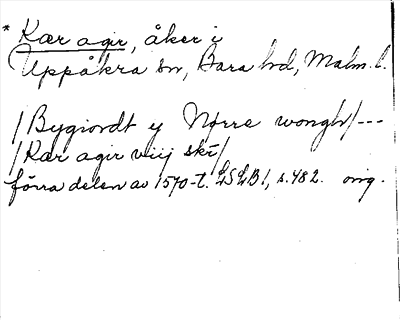 * Kær agir, åker i
Uppåkra sn, Bara hd, Malm. l.
/Bygiordt ey Nørre wongh/ ---
/Kær agir viij skr/
förra delen av 1570-t. LSLB 1, s. 482. orig.